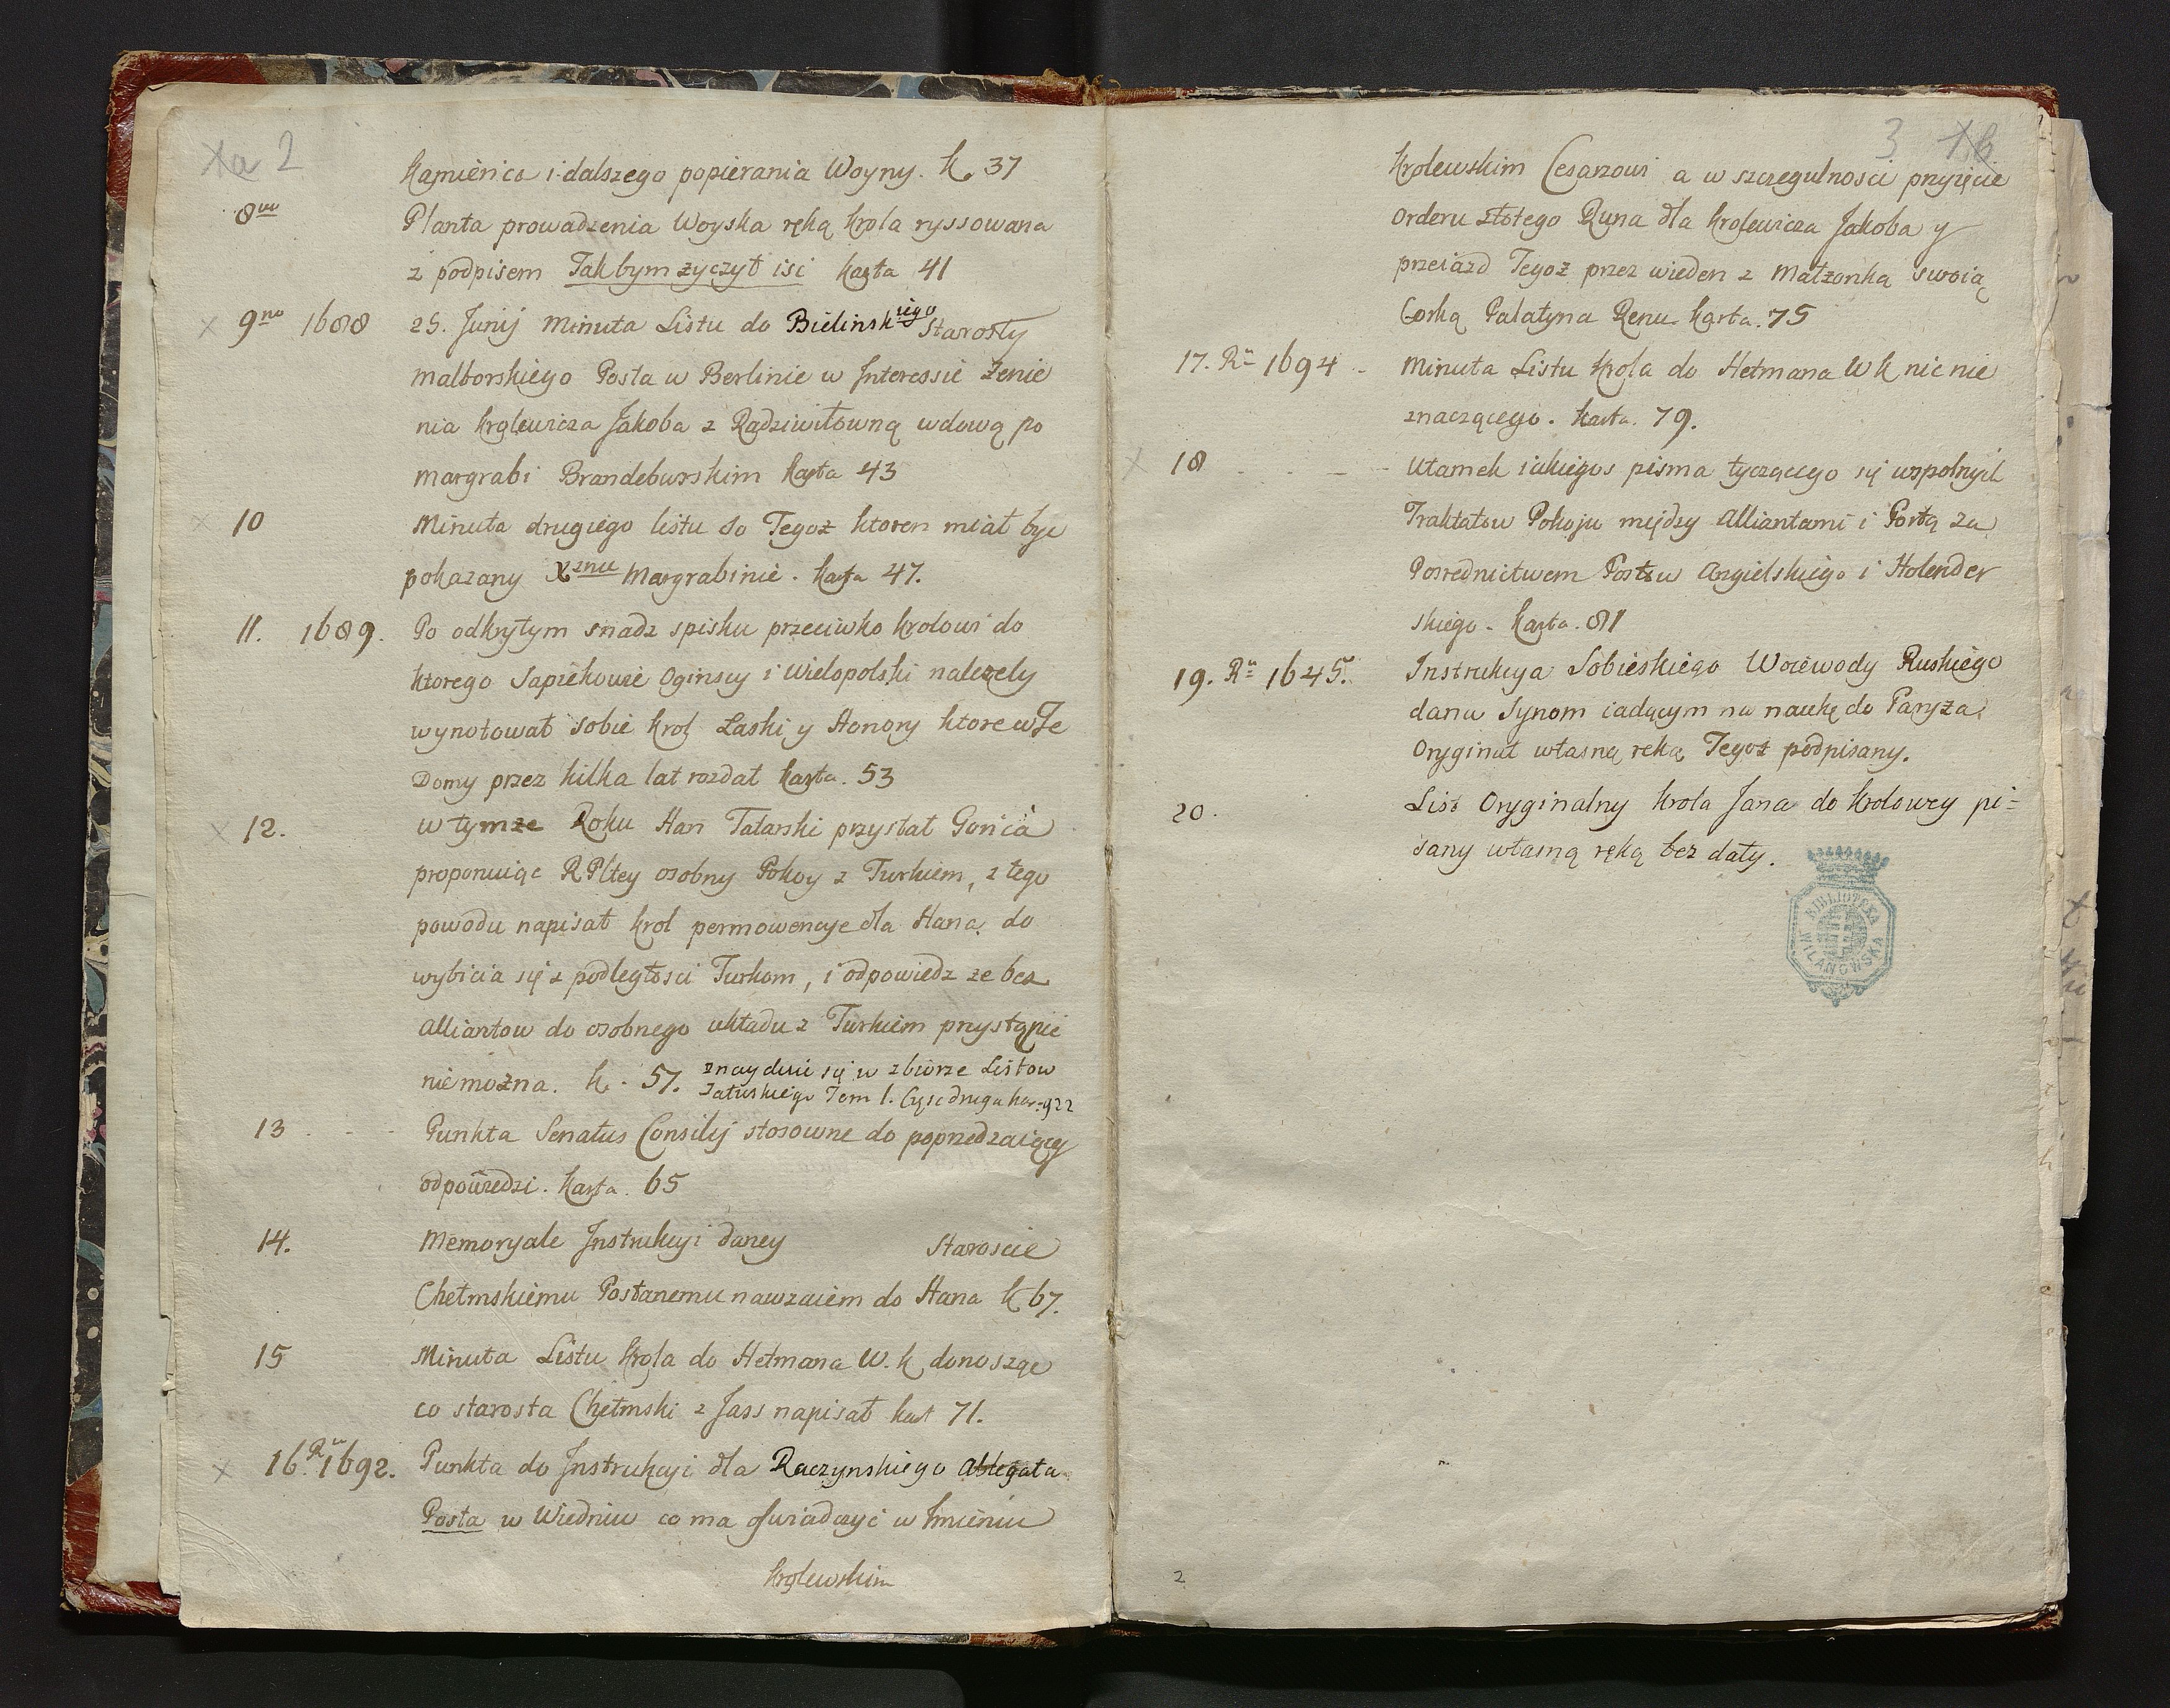 2
Kamienca i dalszego popierania Woyny. k. 37
8vo Planta prowadzenia Woyska ręką Krola ryssowana
z podpisem Takbym życzył isć karta 41
x 9no 1688 25. Junij Minuta Listu do Bielinskiego Starosty
malborskiego Posła w Berlinie w Interessie Żenie
nia Krolewicza Jakoba z Radziwiłowną wdową po
margrabi Brandeburskim karta 43
x 10 Minuta drugiego listu do Tegoż ktoren miał byc
pokazany Xznie Margrabinie. karta 47.
11. 1689. Po odkrytym snadz spisku przeciwko Krolowi do
ktorego Sapiehowie Oginscy i Wielopolski nalezely
wynotował sobie Krol Łaski y Honory ktore w Te
Domy przez kilka lat rozdał karta. 53
x 12. w tymże Roku Han Tatarski przysłał Gońca
proponuiąc RPltey osobny Pokoy z Turkiem, z tego
powodu napisał Krol permowencye dla Hana do
wybicia się z podległosci Turkom, i odpowiedz ze bez
Alliantow do osobnego układu z Turkiem przystąpić
nie można. k. 57. znayduie się w zbiorze Listow
Załuskiego Tom 1. Częsc druga kar. 922
13 - - - Punkta Senatus Consilij stosowne do poprzedzaiącey
odpowiedzi. karta. 65
14. Memoryale Instrukcyi daney Staroscie
Chełmskiemu Posłanemu nawzaiem do Hana k 67.
15 Minuta Listu Krola do Hetmana W. k donosząc
co starosta Chełmski z Jass napisał kart 71.
x 16. Ru 1692. Punkta do Instrukcyi dla Raczynskiego Ablegata
Posła w Wiedniu co ma oswiadczyć w Imieniu
Krolewskim
3
Krolewskim Cesarzowi a w szczegulnosci przyięcie
Orderu złotego Runa dla Krolewicza Jakoba y
przeiazd Tegoż przez wieden z Małzonką swoią
Corką Palatyna Renu karta. 75
17. Ru 1694 - Minuta Listu Krola do Hetmana W k nic nie
znaczącego. karta. 79.
x 18 - - - - Ułamek iakiegos pisma tyczącego się wspolnych
Traktatow Pokoju między Alliantami i Portą za
Posrednictwem Posłow Angielskiego i Holender
skiego - karta. 81
19. Ru 1645. Instrukcya Sobieskiego Woiewody Ruskiego
dana Synom iadącym na naukę do Paryża.
Oryginał własną ręką Tegoż podpisany.
20. List Oryginalny Krola Jana do Krolowey pi=
sany własną ręką bez daty.
BIBLIOTEKA
WILANOWSKA
2